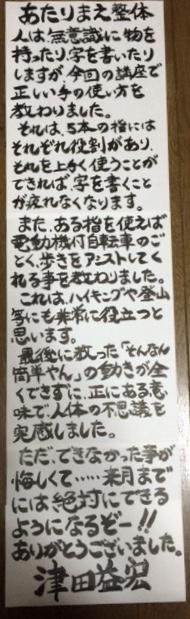 あたりまえ整体
人は無意識に物を
持ったり、字を書いたり
しますが、今回の講座で
正しい手の使い方を
教わりました。
それは、5本の指には
それぞれ役割があり、
それを上手く使うことが
できれば、字を書くこと
が疲れなくなります。
また、ある指を使えば
電動機付自転車のご
とく、歩きをアシストしてく
れる事を教わりました。
これは、ハイキングや登山
等にも非常に役立つと
思います。
最後に教った「そんなん
簡単やん」の動きが全
くできずに、正にある意
味で、人体の不思議を
実感しました。
ただ、できなかった事が
悔しくて……来月まで
には絶対にできる
ようになるぞー!!
ありがとうございました。
津田益宏